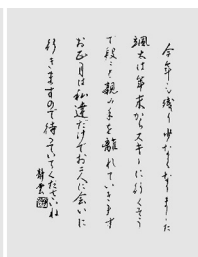 今年も残り少なくなりました
颯太は年末からスキーに行くそう
で段々と親の手を離れていきます
お正月は私達だけでお二人に会いに
行きますので待っていてくださいね